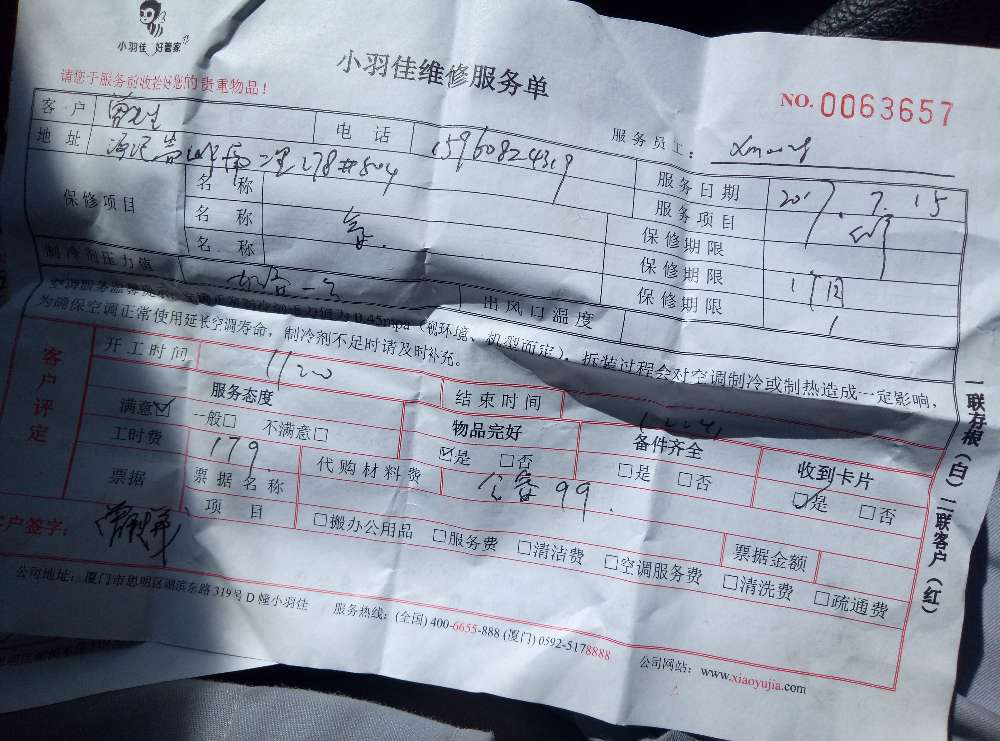 小羽佳 好管家
小羽佳维修服务单
请您于服务前收拾好您的贵重物品！
NO. 0063657
服务员工：
客户 曾先生 电话 15960824319 服务日期 2017.7.15
地址 里278#504 服务项目
保修项目 名称 保修期限
名称 保修期限
名称 保修期限
制冷剂压力值 出风口温度
0.45mpa（视环境、机型而定），拆装过程会对空调制冷或制热造成一定影响，
为确保空调正常使用延长空调寿命，制冷剂不足时请及时补充。
客户评定
开工时间 11/20 结束时间
服务态度 物品完好 备件齐全 收到卡片
满意☑ 一般□ 不满意□ ☑是 □否 □是 □否 ☑是 □否
工时费 179. 代购材料费 99.
票据 票据名称 票据金额
项目 □搬办公用品 □服务费 □清洁费 □空调服务费 □清洗费 □疏通费
客户签字：
一联存根（白）二联客户（红）
公司地址：厦门市思明区湖滨东路319号D幢小羽佳 服务热线：(全国) 400-6655-888 (厦门) 0592-5178888 公司网站：www.xiaoyujia.com